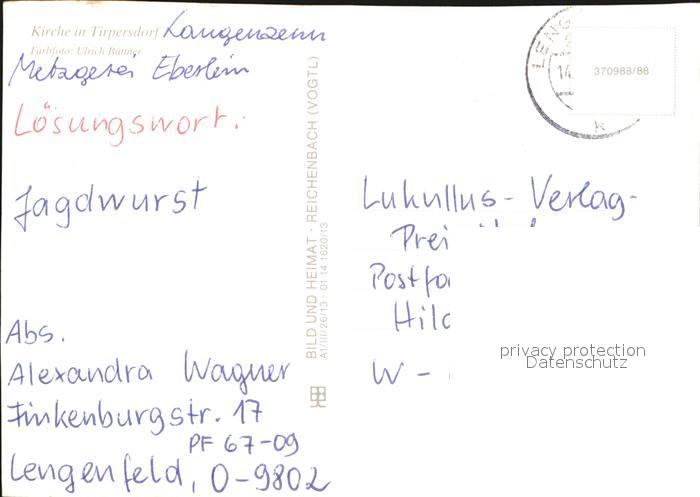 Kirche in Tirpersdorf
Farbfoto: Ulrich Büttner
Langenzenn
Metzgerei Eberlein
Lösungswort:
Jagdwurst
Abs.
Alexandra Wagner
Finkenburgstr. 17
PF 67-09
Lengenfeld, O-9802
BILD UND HEIMAT · REICHENBACH (VOGTL)
A1/III/26/13 · 01 14 1620/13
LENG
14.
k
370988/88
Lukullus-Verlag-
Prei
Postfa
Hild
W -
privacy protection
Datenschutz